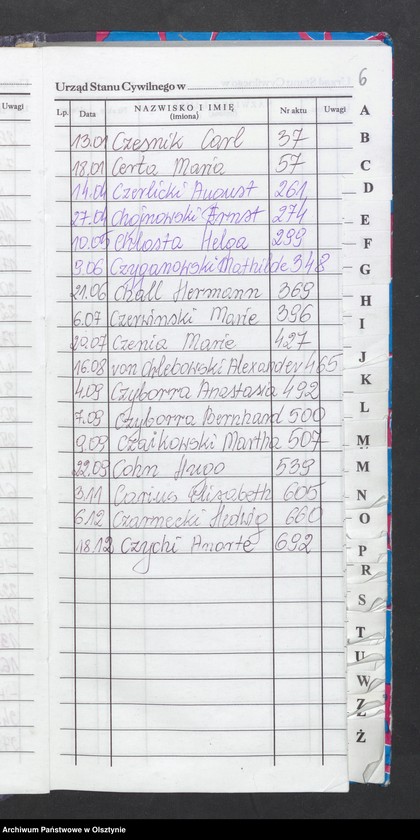 6
Uwagi
Urząd Stanu Cywilnego w
Lp. Data NAZWISKO I IMIĘ (imiona) Nr aktu Uwagi
13.01 Czesnik Carl 37
18.01 Certa Maria 57
14.04 Czerlicki August 261
27.04 Chojnowski Ernst 274
10.05 Chlosta Helga 299
9.06 Czyganowski Mathilde 348
21.06 Chall Hermann 369
6.07 Czerwinski Marie 396
20.07 Czenia Marie 427
16.08 von Chlebowski Alexander 465
4.09 Czyborra Anastasia 492
7.09 Czyborra Bernhard 500
9.09 Czaikowski Martha 507
22.09 Cohn Hugo 539
3.11 Carius Elisabeth 605
6.12 Czarnecki Hedwig 660
18.12 Czychi 692
A
B
C
D
E
F
G
H
I
J
K
L
M
M
N
O
P
R
S
T
U
W
Z
Ż
Archiwum Państwowe w Olsztynie